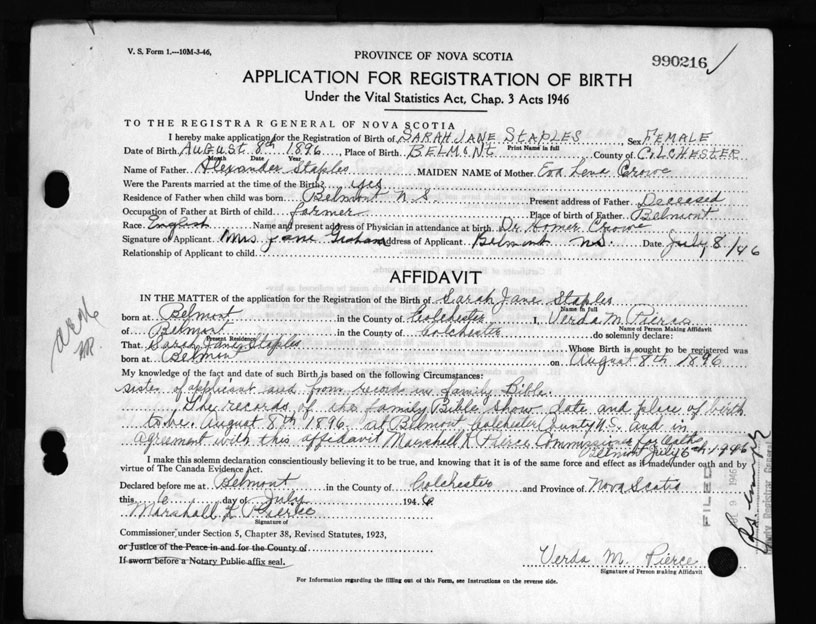 V. S. Form 1.—10M-3-46,
PROVINCE OF NOVA SCOTIA
990216
APPLICATION FOR REGISTRATION OF BIRTH
Under the Vital Statistics Act, Chap. 3 Acts 1946
TO THE REGISTRAR GENERAL OF NOVA SCOTIA
I hereby make application for the Registration of Birth of SARAH JANE STAPLES Sex FEMALE
Print Name in full
Date of Birth August 8th 1896 Place of Birth BELMONT County of COLCHESTER
Month Date Year
Name of Father Alexander Staples MAIDEN NAME of Mother Eva Lena Crowe
Were the Parents married at the time of the Birth? yes
Residence of Father when child was born Belmont N S Present address of Father Deceased
Occupation of Father at Birth of child farmer Place of birth of Father Belmont
Race English Name and present address of Physician in attendance at birth Dr Homer Crowe
Signature of Applicant Mrs Jane Graham Address of Applicant Belmont NS. Date July 8/46
Relationship of Applicant to child
AFFIDAVIT
IN THE MATTER of the application for the Registration of the Birth of Sarah Jane Staples
Name in full
born at Belmont in the County of Colchester I, Verda M. Pierce
Name of Person Making Affidavit
of Belmont in the County of Colchester do solemnly declare:
Present Residence
That Sarah Jane Staples Whose Birth is sought to be registered was
born at Belmont on August 8th 1896
My knowledge of the fact and date of such Birth is based on the following Circumstances:
sister of applicant and from record in family Bible.
The records of the family Bible show date and place of birth
to be August 8th 1896, at Belmont Colchester County N.S. and in
agreement with this affidavit Marshall K Pierce Commissioner for Oaths
Belmont July 6th 1946
I make this solemn declaration conscientiously believing it to be true, and knowing that it is of the same force and effect as if made under oath and by
virtue of The Canada Evidence Act.
Declared before me at Belmont in the County of Colchester and Province of Nova Scotia
this 6 day of July 1946
Marshall K Pierce
Signature of
Commissioner under Section 5, Chapter 38, Revised Statutes, 1923,
or Justice of the Peace in and for the County of
If sworn before a Notary Public affix seal.
Verda M. Pierce
Signature of Person making Affidavit
For Information regarding the filling out of this Form, see Instructions on the reverse side.
FILED
9 1946
Deputy Registrar General